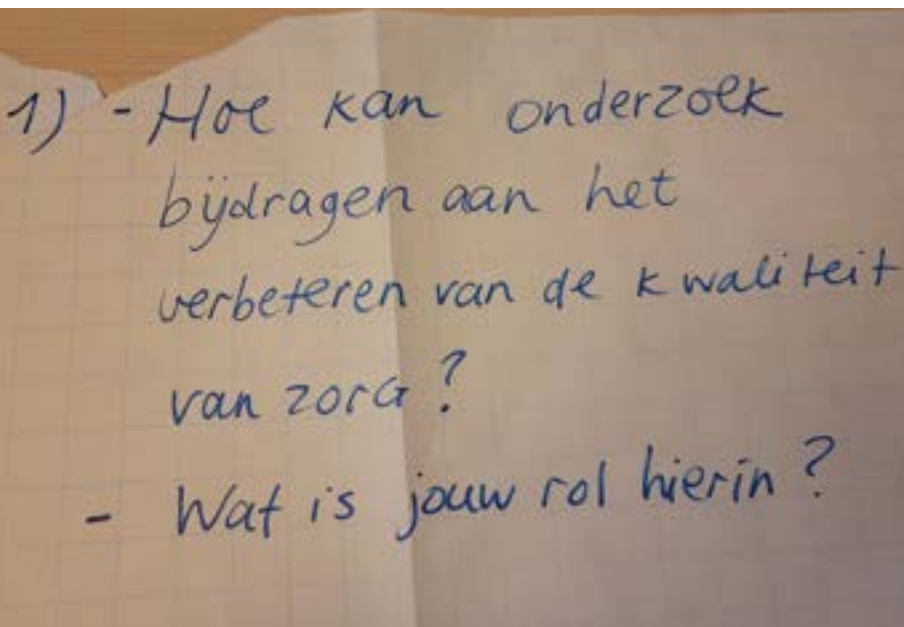 1) - Hoe kan onderzoek
bijdragen aan het
verbeteren van de kwaliteit
van zorg?
- Wat is jouw rol hierin?